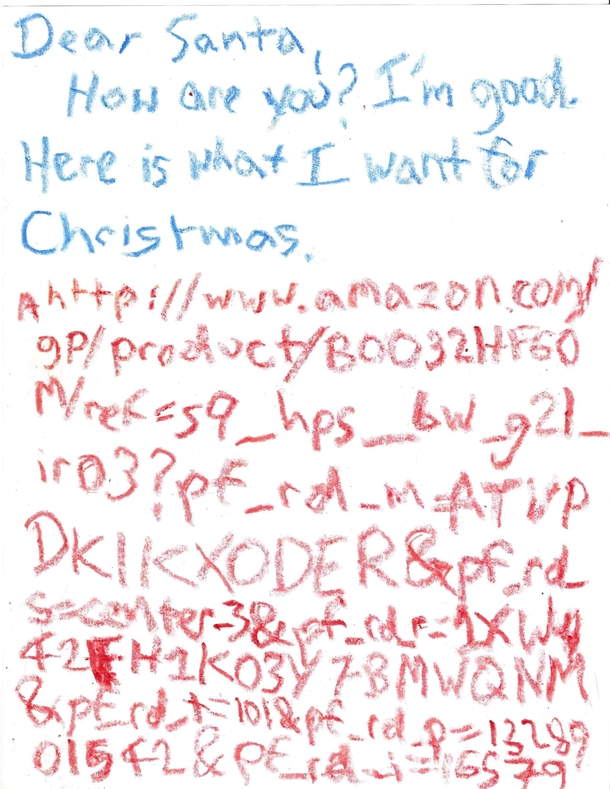 Dear Santa,
How are you? I'm good.
Here is what I want for
Christmas.
http://www.amazon.com/
gp/product/B0032HF60
M/ref=s9_hps_bw_g21_
ir03?pf_rd_m=ATVP
DKIKX0DER&pf_rd_
s=center-3&pf_rd_r=1XWY
42FH1K03Y78MWQNM
&pf_rd_t=101&pf_rd_p=13289
01542&pf_rd_i=165 79